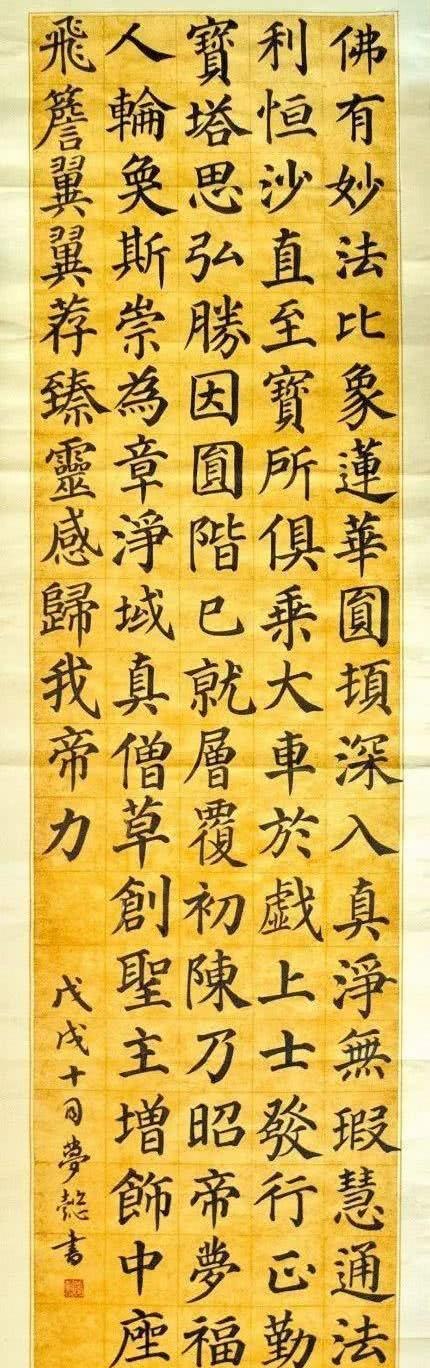 佛有妙法比象蓮華圓頓深入真淨無瑕慧通法
利恒沙直至寶所俱乗大車於戱上士發行正勤
寶塔思弘勝因圓階已就層覆初陳乃昭帝夢福
人輪奐斯崇為章淨域真僧草創聖主增飾中座
飛簷翼翼荐臻靈感歸我帝力
戊戌十月夢懿書